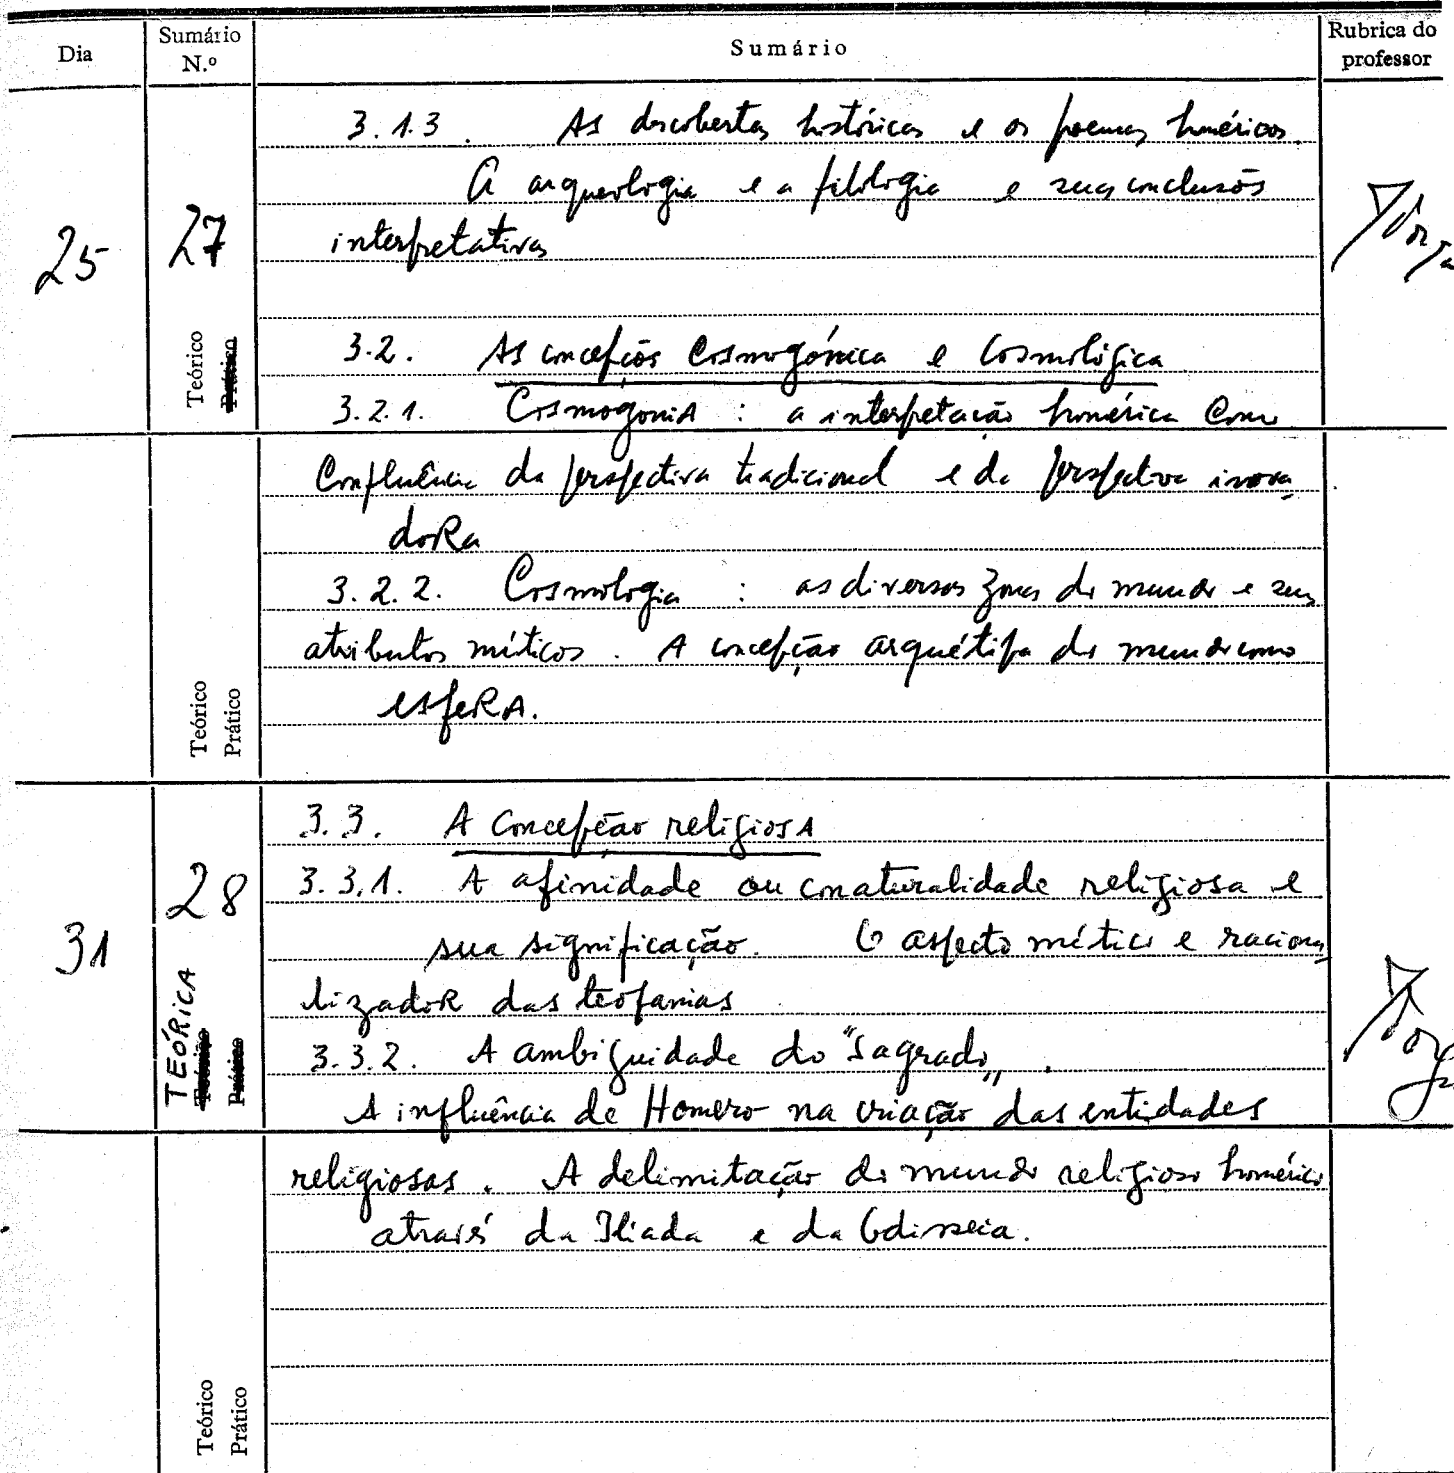 Dia
Sumário N.º
Sumário
Rubrica do professor
25
27
Teórico
Prático
3.1.3. As descobertas históricas e os poemas homéricos.
A arqueologia e a filologia e suas conclusões
interpretativas
3.2. As concepções Cosmogónica e Cosmológica
3.2.1. Cosmogonia : a interpretação homérica como
Confluência da perspectiva tradicional e da perspectiva inova
dora
3.2.2. Cosmologia : as diversas zonas do mundo e seus
atributos míticos. A concepção arquétipa do mundo como
esfera.
Teórico
Prático
31
28
TEÓRICA
Teórico
Prático
3.3. A Concepção religiosa
3.3.1. A afinidade ou conaturalidade religiosa e
sua significação. O aspecto mítico e raciona
lizador das teofanias
3.3.2. A ambiguidade do "Sagrado".
A influência de Homero na criação das entidades
religiosas. A delimitação do mundo religioso homérico
através da Ilíada e da Odisseia.
Teórico
Prático